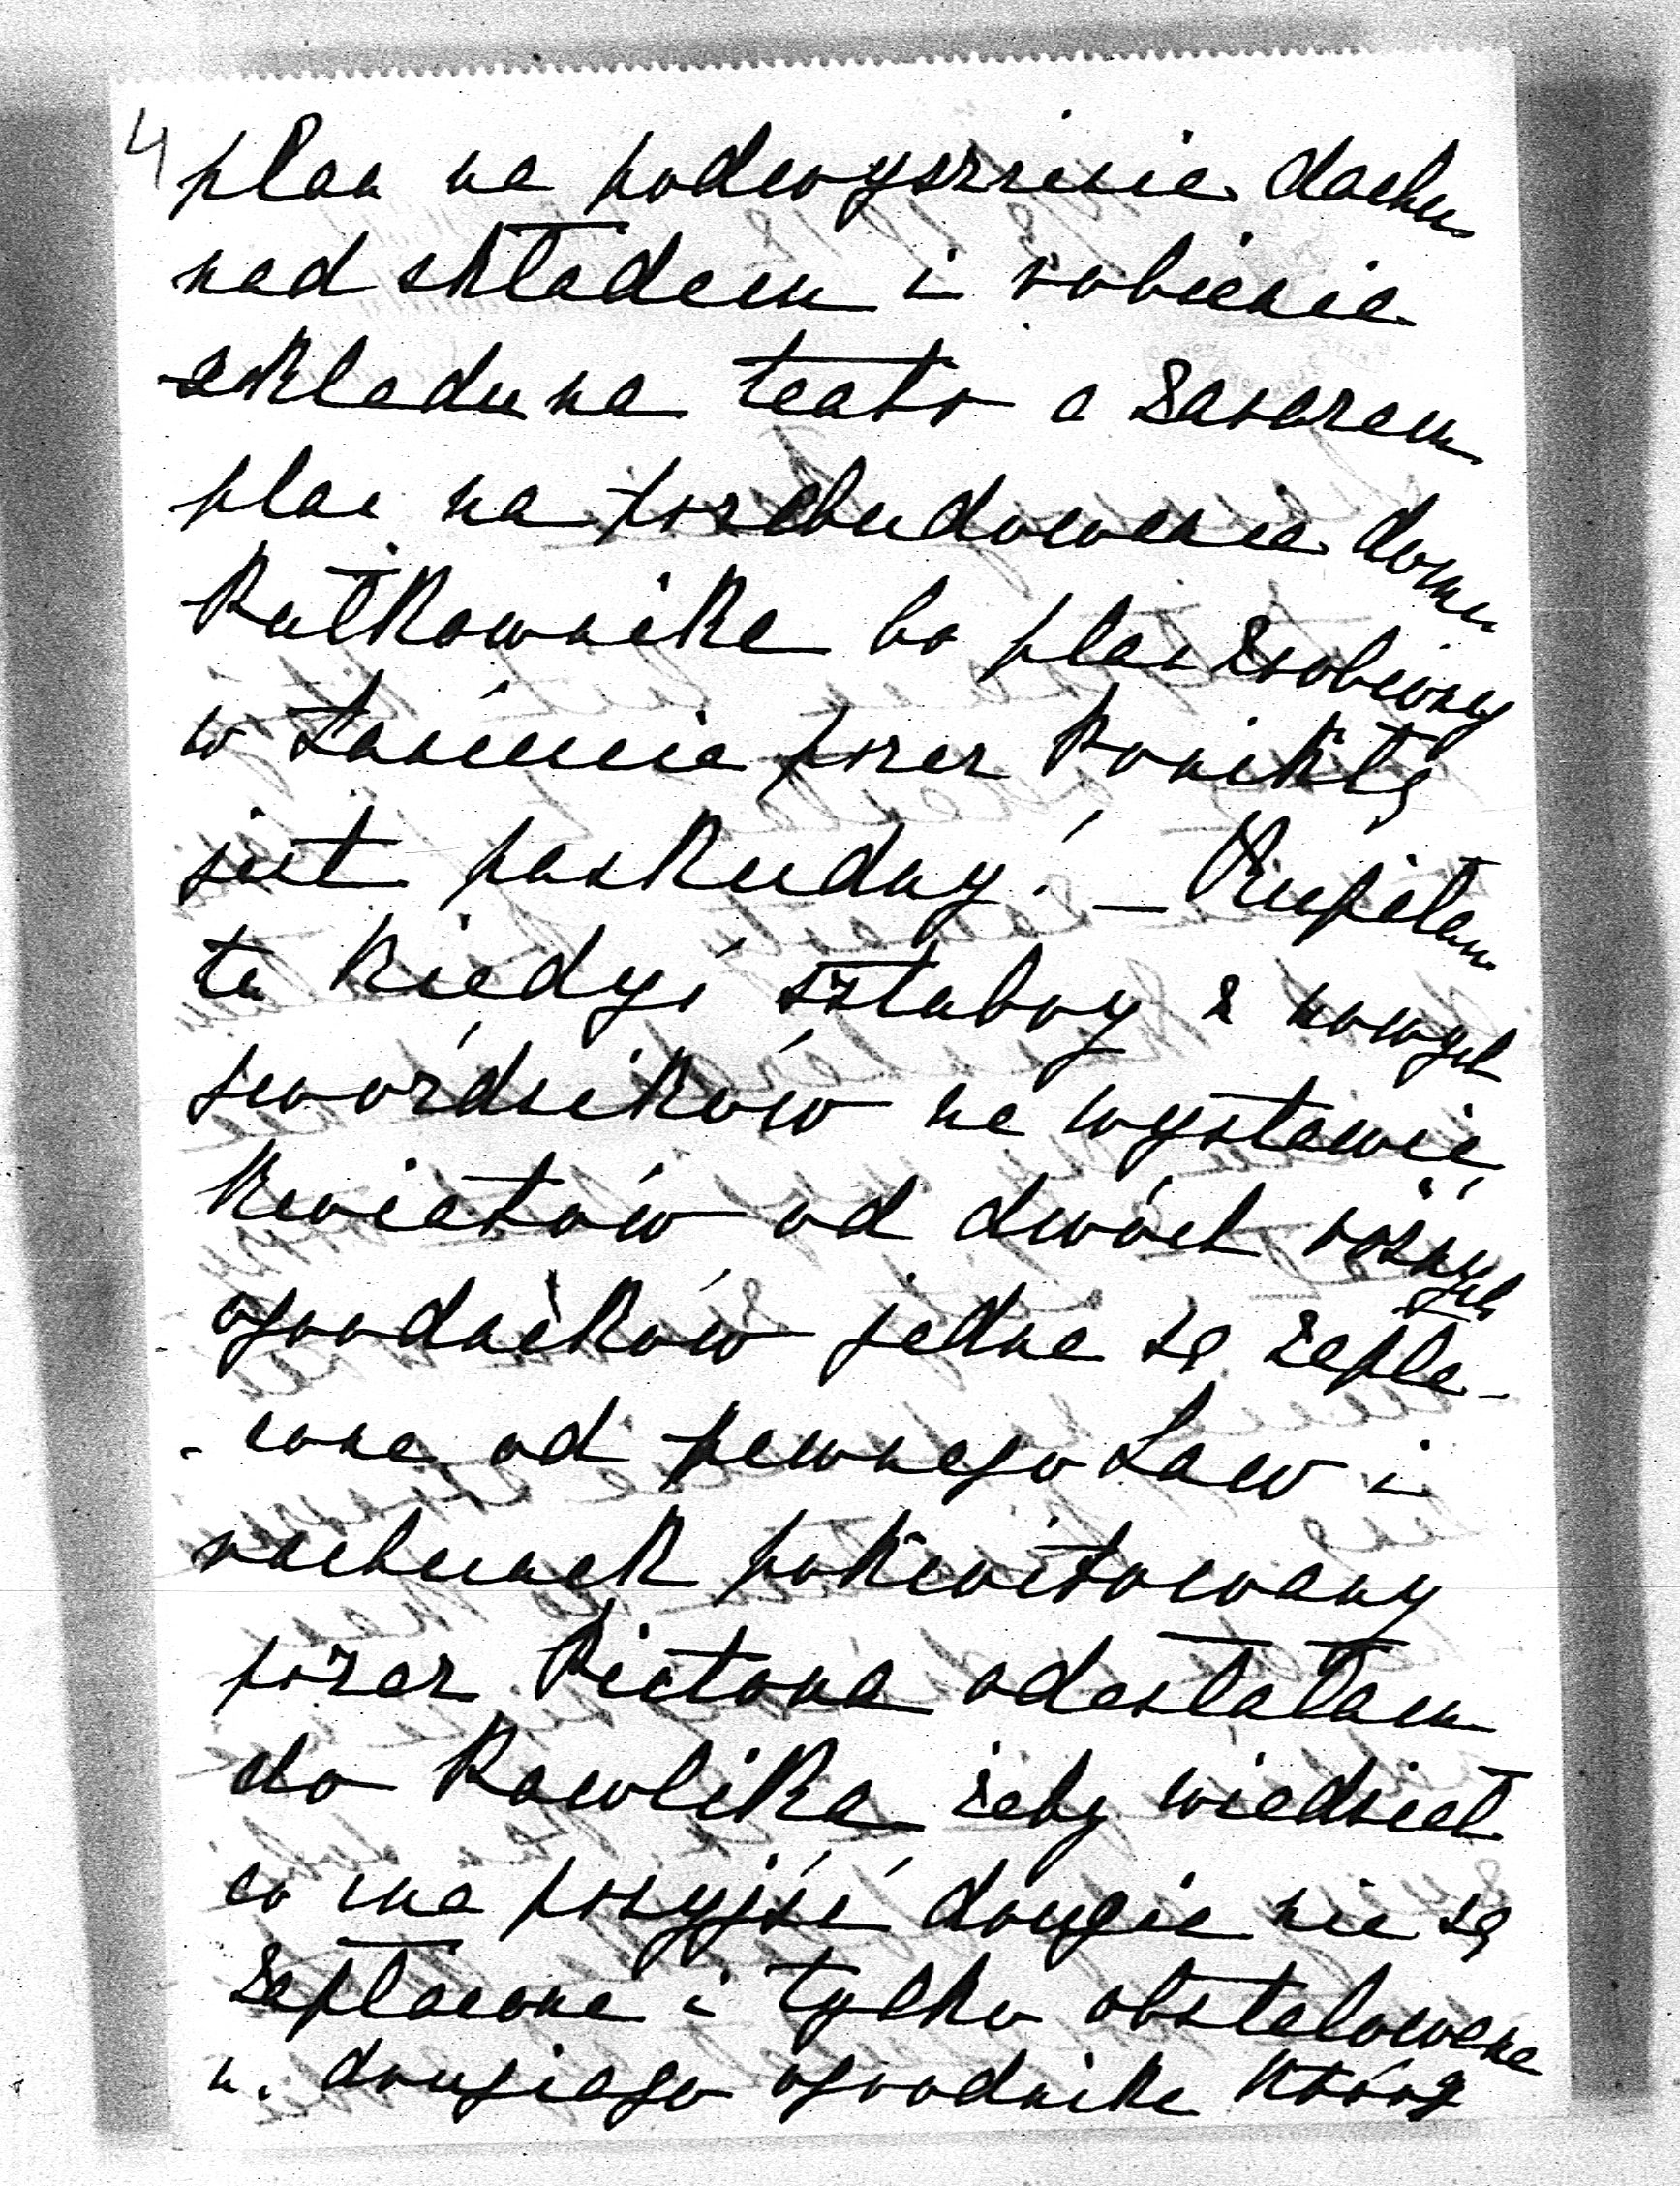 4 plan na podwyszrenie dachu
nad składem i robienie
składu na teatr a zarazem
plan na przebudowanie domu
Pułkownika bo plan zrobiony
w Łańcucie przez Ponikłę
jest paskudny! — Kupiłam
tu kiedyś sztabry z nowych
gwoździków na wystawie
kwiatów od dwóch różnych
ogrodników jedne są zapła-
-cone od pewnego Law i
rachunek pokwitowany
przez Pictona odesłałam
do Pawlika żeby wiedział
co ma przyjść drugie nie są
zapłacone i tylko obstalowane
u drugiego ogrodnika który